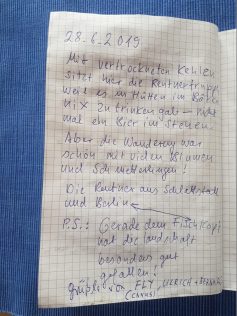 28.6.2019
Mit vertrockneten Kehlen
sitzt hier die Rentnertruppe
weil es in Hütten im
nix zu trinken gab – nicht
mal ein Bier im Stehen!
Aber die Wanderung war
schön mit vielen Blumen
und Schmetterlingen!
Die Rentner aus Schlettstadt
und Berlin
P.S.: Gerade dem Fischkopf
hat die Landschaft
besonders gut
gefallen!
Grüße von ULRICH +